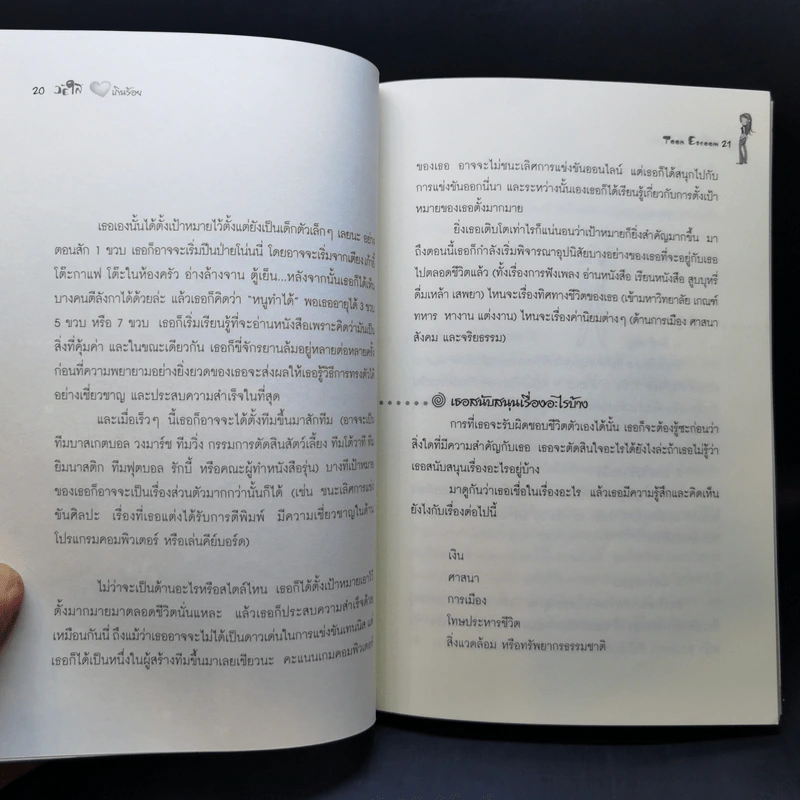 20 วัยใส เกินร้อย
เธอเองนั้นได้ตั้งเป้าหมายไว้ตั้งแต่ยังเป็นเด็กตัวเล็กๆ เลยนะ อย่าง
ตอนสัก 1 ขวบ เธอก็อาจจะเริ่มปีนป่ายโน่นนี่ โดยอาจจะเริ่มจากเตียง เก้าอี้
โต๊ะกาแฟ โต๊ะในห้องครัว อ่างล้างจาน ตู้เย็น...หลังจากนั้นเธอก็ได้เห็น
บางคนตีลังกาได้ด้วยล่ะ แล้วเธอก็คิดว่า "หนูทำได้" พอเธออายุได้ 3 ขวบ
5 ขวบ หรือ 7 ขวบ เธอก็เริ่มเรียนรู้ที่จะอ่านหนังสือเพราะคิดว่ามันเป็น
สิ่งที่คุ้มค่า และในขณะเดียวกัน เธอก็ขี่จักรยานล้มอยู่หลายต่อหลายครั้ง
ก่อนที่ความพยายามอย่างยิ่งยวดของเธอจะส่งผลให้เธอรู้วิธีการทรงตัวได้
อย่างเชี่ยวชาญ และประสบความสำเร็จในที่สุด
และเมื่อเร็วๆ นี้เธอก็อาจจะได้ตั้งทีมขึ้นมาสักทีม (อาจจะเป็น
ทีมบาสเกตบอล วงมาร์ช ทีมวิ่ง กรรมการตัดสินสัตว์เลี้ยง ทีมโต้วาที ทีม
ยิมนาสติก ทีมฟุตบอล รักบี้ หรือคณะผู้ทำหนังสือรุ่น) บางทีเป้าหมาย
ของเธอก็อาจจะเป็นเรื่องส่วนตัวมากกว่านั้นก็ได้ (เช่น ชนะเลิศการแข่ง
ขันศิลปะ เรื่องที่เธอแต่งได้รับการตีพิมพ์ มีความเชี่ยวชาญในด้าน
โปรแกรมคอมพิวเตอร์ หรือเล่นคีย์บอร์ด)
ไม่ว่าจะเป็นด้านอะไรหรือสไตล์ไหน เธอก็ได้ตั้งเป้าหมายเอาไว้
ตั้งมากมายมาตลอดชีวิตนั่นแหละ แล้วเธอก็ประสบความสำเร็จด้วย
เหมือนกันนี่ ถึงแม้ว่าเธออาจจะไม่ได้เป็นดาวเด่นในการแข่งขันเทนนิส แต่
เธอก็ได้เป็นหนึ่งในผู้สร้างทีมขึ้นมาเลยเชียวนะ คะแนนเกมคอมพิวเตอร์
Teen Esteem 21
ของเธอ อาจจะไม่ชนะเลิศการแข่งขันออนไลน์ แต่เธอก็ได้สนุกไปกับ
การแข่งขันออกนี่นา และระหว่างนั้นเธอก็ได้เรียนรู้เกี่ยวกับการตั้งเป้า
หมายของเธอตั้งมากมาย
ยิ่งเธอเติบโตเท่าไรก็แน่นอนว่าเป้าหมายก็ยิ่งสำคัญมากขึ้น มา
ถึงตอนนี้เธอก็กำลังเริ่มพิจารณาอุปนิสัยบางอย่างของเธอที่จะอยู่กับเธอ
ไปตลอดชีวิตแล้ว (ทั้งเรื่องการฟังเพลง อ่านหนังสือ เรียนหนังสือ สูบบุหรี่
ดื่มเหล้า เสพยา) ไหนจะเรื่องทิศทางชีวิตของเธอ (เข้ามหาวิทยาลัย เกณฑ์
ทหาร หางาน แต่งงาน) ไหนจะเรื่องค่านิยมต่างๆ (ด้านการเมือง ศาสนา
สังคม และจริยธรรม)
เธอสนับสนุนเรื่องอะไรบ้าง
การที่เธอจะรับผิดชอบชีวิตตัวเองได้นั้น เธอก็จะต้องรู้ซะก่อนว่า
สิ่งใดที่มีความสำคัญกับเธอ เธอจะตัดสินใจอะไรได้ยังไงล่ะถ้าเธอไม่รู้ว่า
เธอสนับสนุนเรื่องอะไรอยู่บ้าง
มาดูกันว่าเธอเชื่อในเรื่องอะไร แล้วเธอมีความรู้สึกและคิดเห็น
ยังไงกับเรื่องต่อไปนี้
เงิน
ศาสนา
การเมือง
โทษประหารชีวิต
สิ่งแวดล้อม หรือทรัพยากรธรรมชาติ